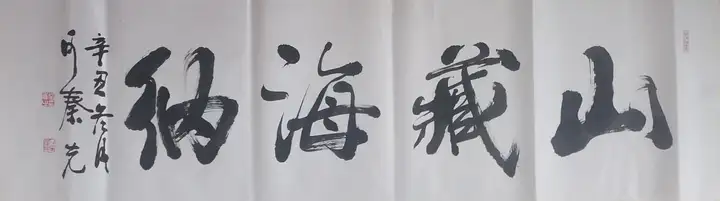 山藏海納
辛丑冬月
秦克